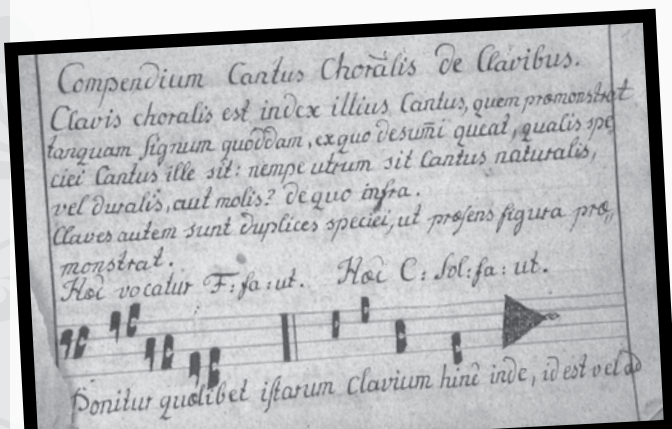 Compendium Cantus Chorãlis de Clavibus.
Clavis choralis est index illius Cantus, quem præmonstrat
tanquam signum quoddam, ex quo desumi queat, qualis spe
ciei Cantus ille sit: nempe utrum sit Cantus naturalis,
vel duralis, aut molis? de quo infra.
Claves autem sunt duplices speciei, ut præsens figura præ„
monstrat.
Hoc vocatur F:fa:ut. Hoc C:Sol:fa:ut.
Ponitur quælibet istarum Clavium hinc inde, id est vel ad